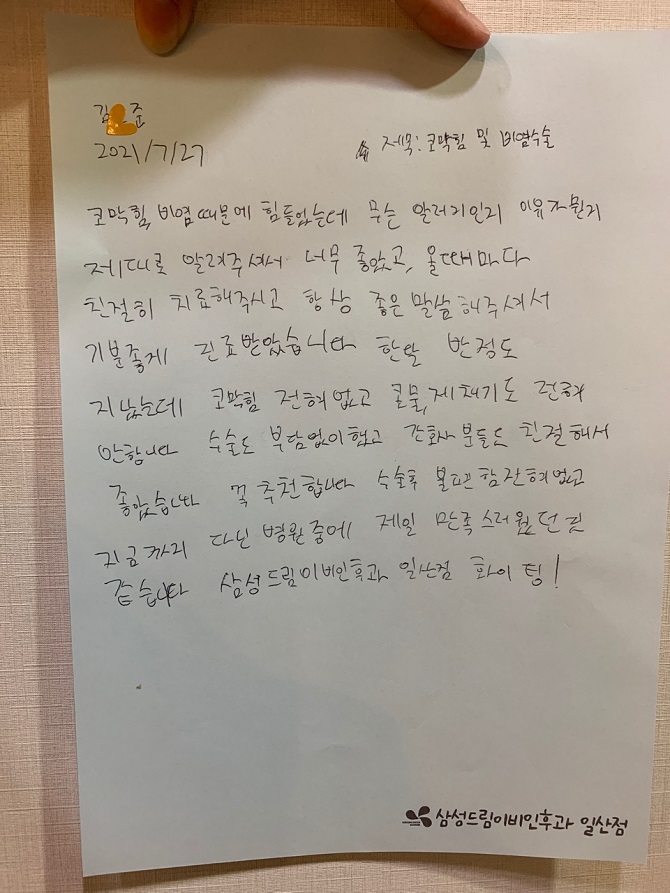 김 준
2021/7/27
제목: 코막힘 및 비염수술
코막힘, 비염 때문에 힘들었는데 무슨 알러지인지 이유가 뭔지
제대로 알려주셔서 너무 좋았고, 올때마다
친절히 치료해주시고 항상 좋은 말씀 해주셔서
기분좋게 진료받았습니다 한달 반정도
지났는데 코막힘 전혀 없고 콧물, 재채기도 전혀
안합니다 수술도 부담없이 했고 간호사 분들도 친절해서
좋았습니다 꼭 추천합니다 수술후 불편함 전혀 없고
지금까지 다닌 병원 중에 제일 만족스러웠던 곳
같습니다 삼성드림이비인후과 일산점 화이팅!
삼성드림이비인후과 일산점